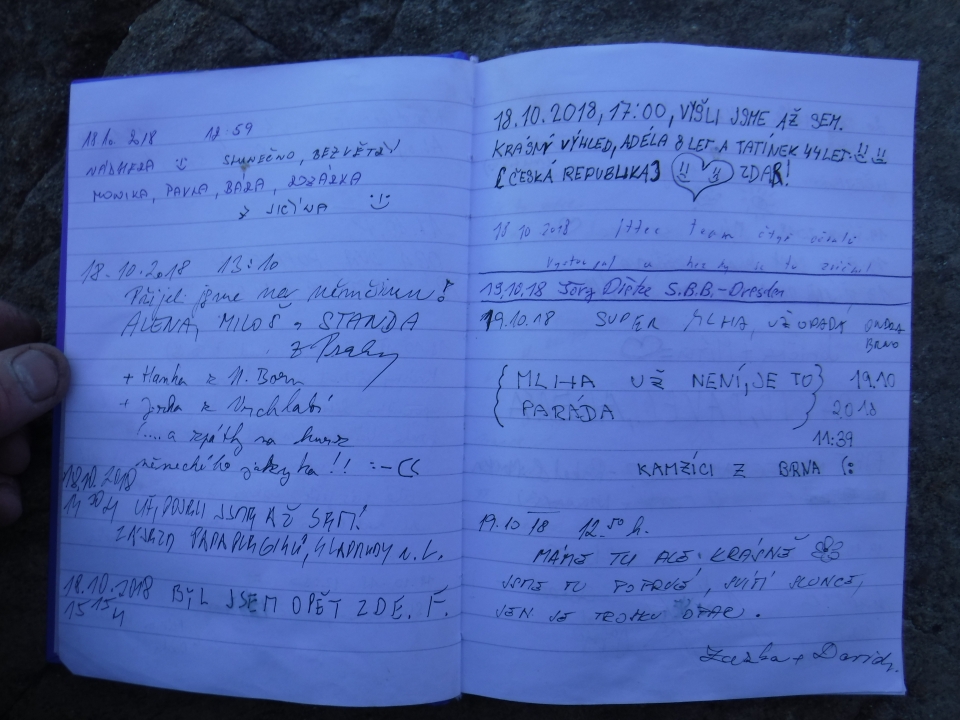 18.10.2018 12:59
NÁDHERA SLUNEČNO, BEZVĚTŘÍ
MONIKA, PAVLA, BÁRA, ROZÁRKA
Z JIČÍNA
18.10.2018 13:10
Přijeli jsme na němčinu!
ALENA, MILOŠ, STANDA
z Prahy
+ Hanka z N. Boru
+ Jirka z Vrchlabí
!....a zpátky na kurz
německého jazyka!! :-((
18.10.2018
JSME AŽ SEM!
18.10.2018 BYL JSEM OPĚT ZDE. F.
15 15 H
18.10.2018, 17:00, VYŠLI JSME AŽ SEM.
KRÁSNÝ VÝHLED, ADÉLA 8 LET A TATÍNEK 44 LET!!
[ČESKÁ REPUBLIKA] ZDAR!
18 10 2018 team
19.10.18 Jörg S.B.B.-Dresden
19.10.18 SUPER MLHA, UŽ OPADÁ ONDRA
BRNO
{MLHA UŽ NENÍ, JE TO} 19.10
PARÁDA 2018
11:39
KAMZÍCI Z BRNA (:
19.10 18 12.50 h.
MÁME TU ALE KRÁSNĚ
JSME TU POPRVÉ, SVÍTÍ SLUNCE,
JEN JE TROŠKU OPAR.
+ David.